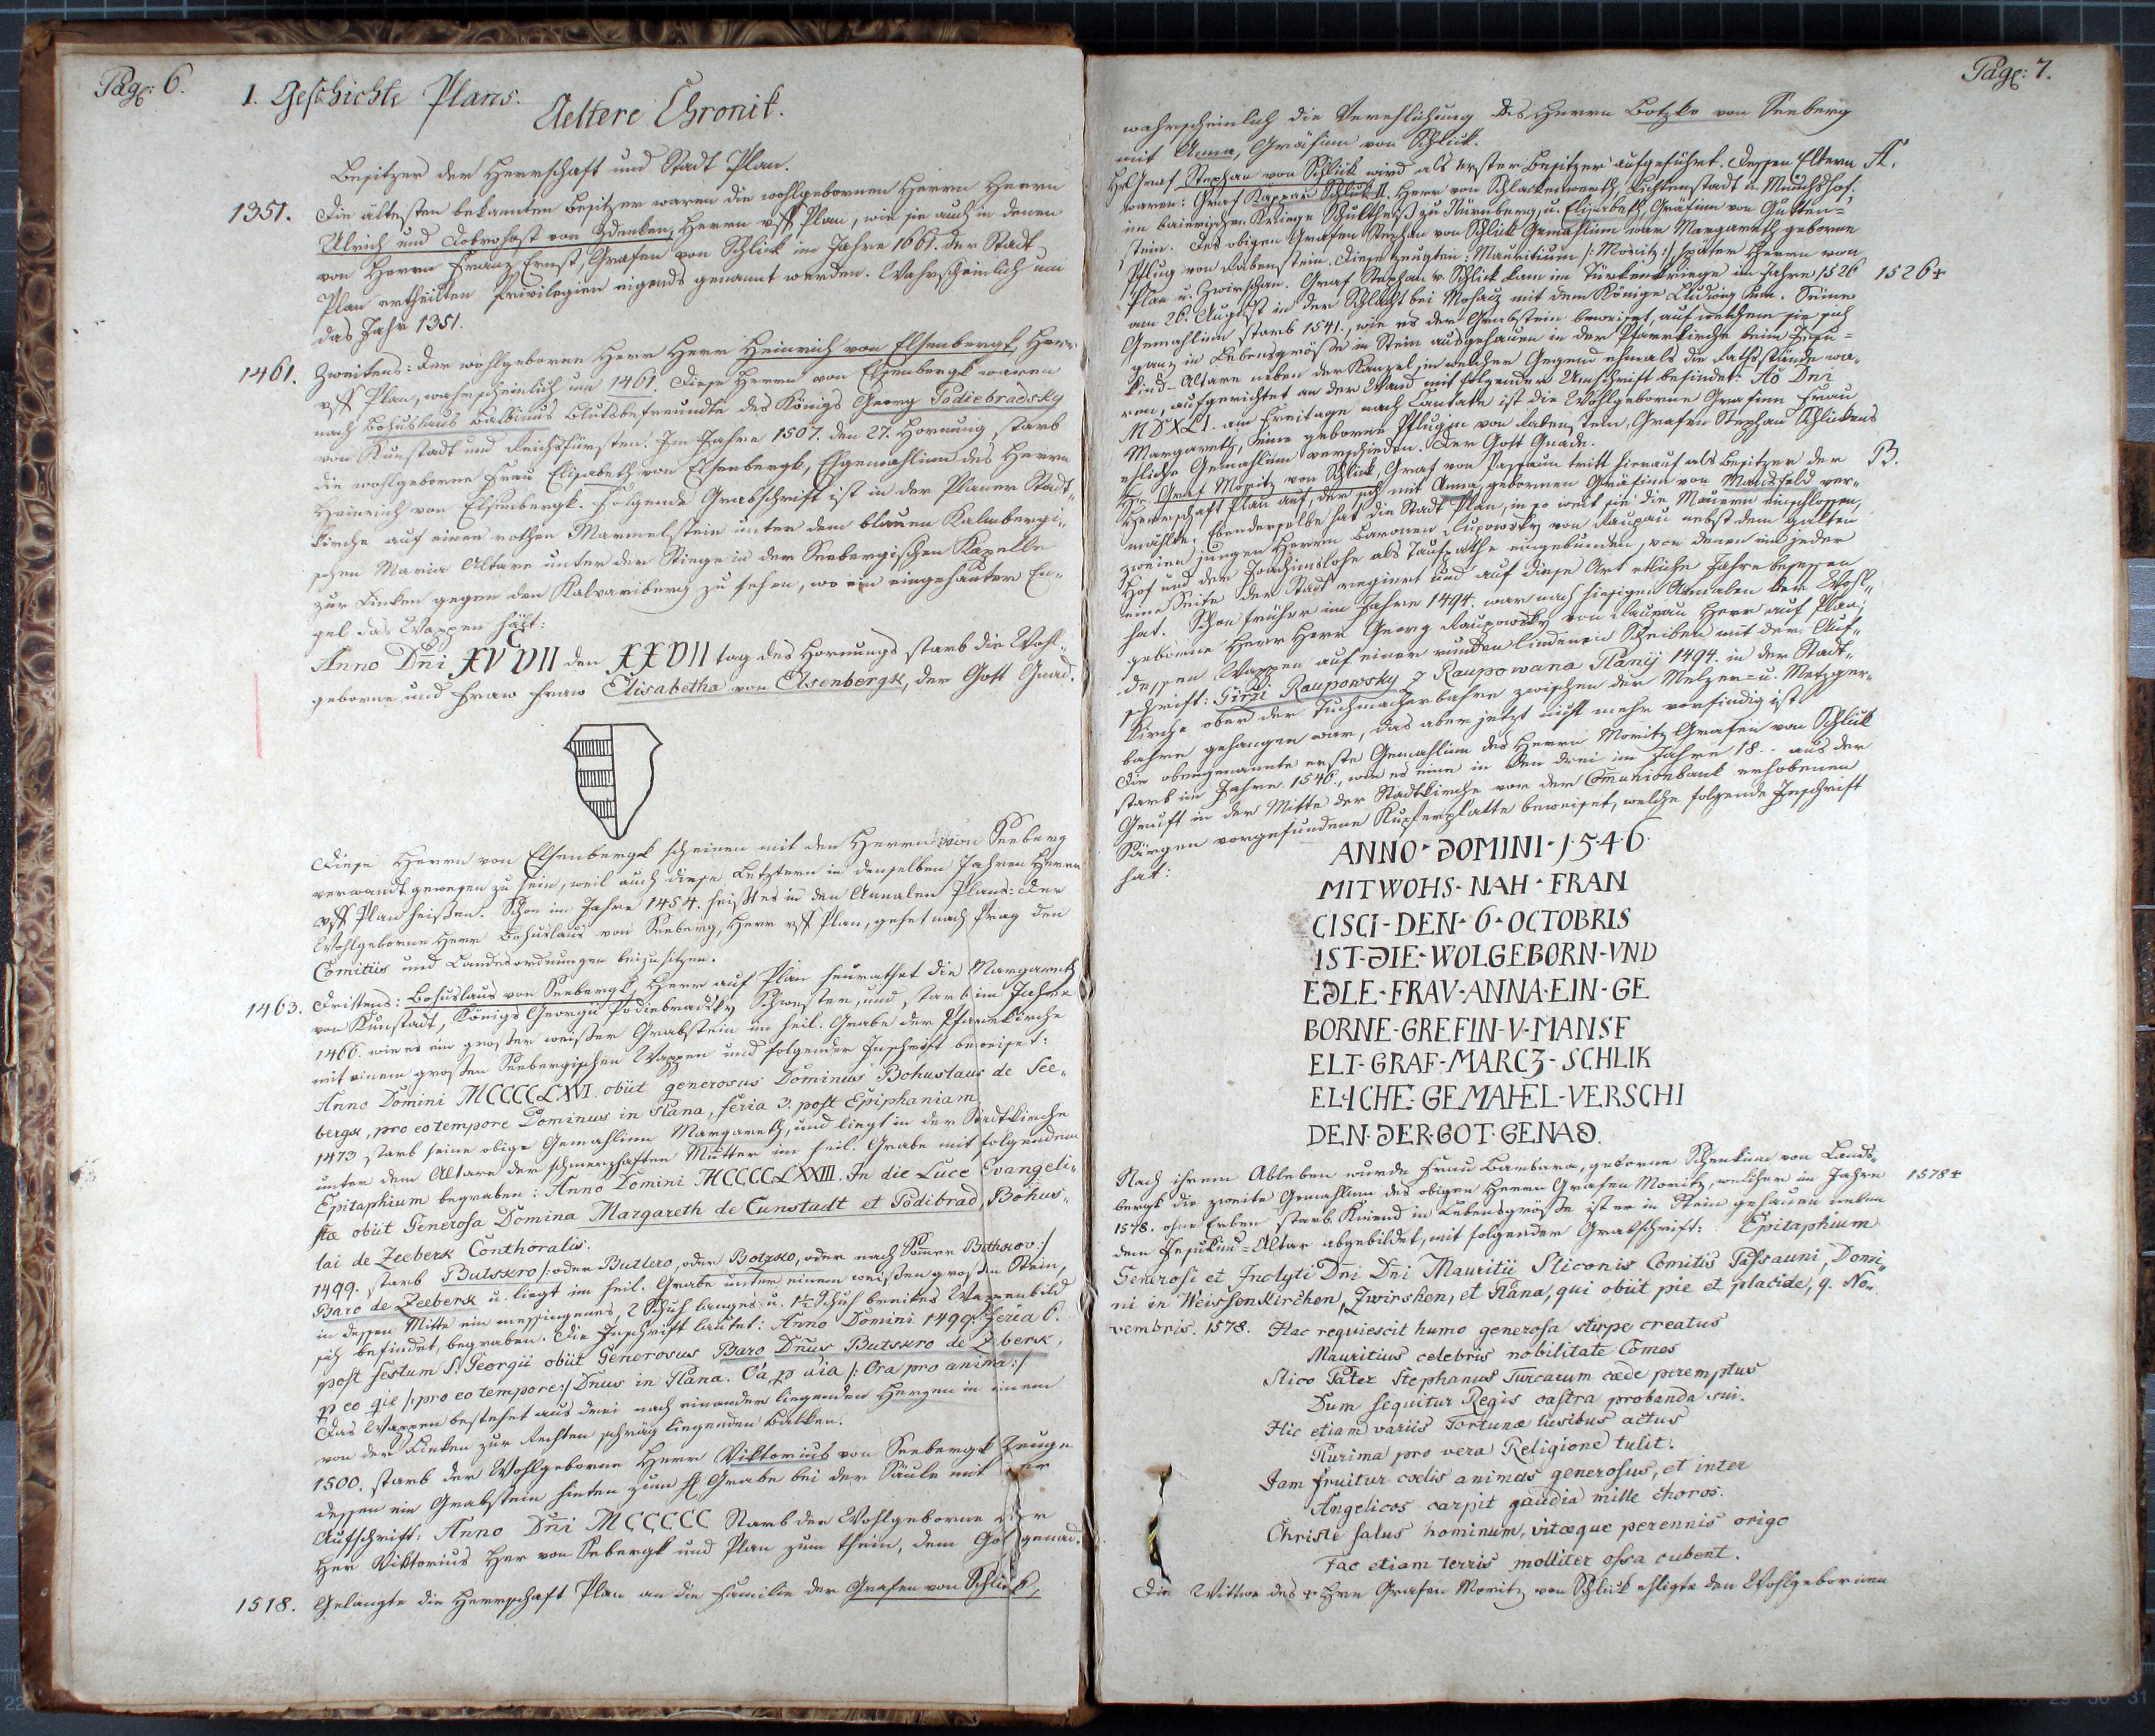 Pag: 6.
I. Geschichte Plans.
Aeltere Chronik.
Besitzer der Herrschaft und Stadt Plan.
1351. Die ältesten bekannten Besitzer waren die wohlgebornen Herrn Herrn
Ulrich und Dobrohost von Zdenken, Herrn uff Plan, wie sie auch in denen
von Herrn Franz Ernst, Grafen von Schlick im Jahre 1661. der Stadt
Plan ertheilten Privilegien eigends genannt werden. Wahrscheinlich um
das Jahr 1351.
1461. Zweitens: der wohlgeborne Herr Herr Heinrich von Elsenbergk, Herr
uff Plan, wahrscheinlich um 1461. Diese Herrn von Elsenbergk waren
nach Bohuslaus Balbinus Blutsbefreundte des Königs Georg Podiebradsky
von Kunstadt und Reichsfürsten. Im Jahre 1507. den 27. Hornung, starb
die wohlgeborne Frau Elisabeth von Elsenbergk, Ehgemahlinn des Herrn
Heinrich von Elsenbergk. Folgende Grabschrift ist in der Planer Stadt-
kirche auf einem rothen Marmelstein unter dem blauen Kalmbergi-
schen Maria Altare unter der Stiege in der Seebergischen Kapelle
zur Linken gegen den Kalvariberg zu sehen, wo ein eingehauter En-
gel das Wappen hält:
Anno Dni XVCVII den XXVII tag des Hornungs starb die Wohl-
geborne und Fraw Fraw Elisabetha von Elsenbergk, der Gott Gnad.
Diese Herrn von Elsenbergk scheinen mit den Herrn von Seeberg
verwandt gewesen zu sein, weil auch diese Letztern in denselben Jahren Herrn
uff Plan heißen. Schon im Jahre 1454. heißt es in den Annalen Plans: Der
Wohlgeborne Herr Bohuslaus von Seeberg, Herr uff Plan, gehet nach Prag den
Comitiis und Landesordnungen beizusitzen.
1463. Drittens: Bohuslaus von Seebergk, Herr auf Plan heurathet die Margareth
von Kunstadt, Königs Georgii Podiebradsky Schwester, und starb im Jahre
1466. wie es ein großer weißer Grabstein im heil. Grabe der Pfarrkirche
mit einem großen Seebergischen Wappen und folgender Inschrift beweiset:
Anno Domini MCCCCLXVI. obiit generosus Dominus Bohuslaus de See-
bergk, pro eo tempore Dominus in Plana, feria 3. post Epiphaniam
1473 starb seine obige Gemahlinn Margareth, und liegt in der Stadtkirche
unter dem Altare der schmerzhaften Mutter im heil. Grabe mit folgendem
Epitaphium begraben: Anno Domini MCCCCLXXIII. In die Luce Evangeli-
stæ obiit Generosa Domina Margareth de Cunstadt et Podibrad, Bohus-
lai de Zeeberk Conthoralis.
1499. starb Butskro /: oder Butlero, oder Botzko, oder nach Somer Bothskov :/
Baro de Zeeberk u. liegt im heil. Grabe unter einem weißen großen Stein,
in dessen Mitte ein messingenes, 2 Schuh langes u. 1½ Schuh breites Wappenbild
sich befindet, begraben. Die Inschrift lautet: Anno Domini 1499. Feria 6.
post festum S. Georgii obiit Generosus Baro Dnus Butskro de Zberk,
p eo qie /: pro eo tempore :/ Dnus in Plana. Oa p aia /: Ora pro anima :/
Das Wappen bestehet aus drei nach einander liegenden Herzen in einem
von der Linken zur Rechten schräg liegenden Balken.
1500. starb der Wohlgeborne Herr Viktorius von Seebergk Zeuge
dessen ein Grabstein hinten zum Grabe bei der Säule mit der
Aufschrift: Anno Dni MCCCCC Starb der Wohlgeborne Herr
Her Viktorius Her von Seebergk und Plan zum thein, dem Got genad.
1518. Gelangte die Herrschaft Plan an die Familie der Grafen von Schlick,
Pag: 7.
wahrscheinlich die Verehlichung des Herrn Botzko von Seeberg
mit Anna, Gräfinn von Schlick.
Hr Graf Stephan von Schlick wird als erster Besitzer aufgeführt. Dessen Eltern A.
waren: Graf Kaspar Schlick II. Herr von Schlackenwerth, Lichtenstadt u. Munichshof;
im baierischen Kriege Schultheiß zu Nürnberg, u. Elisabeth, Gräfinn von Gutten-
stein. Des obigen Grafen Stephan von Schlick Gemahlinn war Margareth geborne
Pflug von Rabenstein. Diese zeugten: Mauritium /: Moritz :/ später Herrn von
Plan u. Zwirschan. Graf Stephan v. Schlick kam im Türkenkriege im Jahre 1526 1526 +
am 26. August in der Schlacht bei Mohacz mit dem Könige Ludwig um. Seine
Gemahlinn starb 1541., wie es der Grabstein beweiset, auf welchem sie sich
ganz in Lebensgröße in Stein ausgehauen in der Pfarrkirche beim Jesu-
kind-Altare neben der Kanzel, in welcher Gegend ehmals die Rathsstände wa-
ren, aufgerichtet an der Wand mit folgender Umschrift befindet: Ao Dni
MDXLI. am Freitage nach Cantate ist die Wohlgeborne Grafinn Frau
Margareth, eine geborne Pflugin von Rabenstein, Grafen Stephan Schlickens
ehliche Gemahlinn verschieden. Der Gott Gnade.
Hr Graf Moritz von Schlick, Graf von Passaun tritt hierauf als Besitzer der B.
Herrschaft Plan auf, der sich mit Anna gebornen Gräfinn von Mandsfeld ver-
mählte. Ebenderselbe hat die Stadt Plan, in so weit sie die Mauern einschlossen,
zweien jungen Herrn Baronen Rupowsky von Raupau nebst dem halten
Hof und der Joachimslohe als Taufpathe eingebunden, von denen ein jeder
eine Seite der Stadt regiert und auf diese Art etliche Jahre besessen
hat. Schon früher im Jahre 1494. war nach hiesigen Annalen der Wohl-
geborne Herr Herr Georg Raupowsky von Raupau Herr auf Plan;
dessen Wappen auf einer runden lindenen Scheiben mit der Auf-
schrift: Girzi Raupowsky z Raupowana Planij 1494. in der Stadt-
Kirche ober der Tuchmacherbahre zwischen der Melzer- u. Metzger-
bahre gehangen war, das aber jetzt nicht mehr vorfindig ist.
Die obengenannte erste Gemahlinn des Herrn Moritz Grafen von Schlick
starb im Jahre 1546., wie es eine in den drei im Jahre 18.. aus der
Gruft in der Mitte der Stadtkirche vor der Comunionbank erhobenen
Särgen vorgefundene Kupferplatte beweiset, welche folgende Inschrift
hat:
ANNO · DOMINI · 1·5·4·6·
MITWOHS · NAH · FRAN
CISCI · DEN · 6 · OCTOBRIS
IST · DIE · WOLGEBORN · VND
EDLE · FRAV · ANNA · EIN · GE
BORNE · GREFIN · V · MANSF
ELT · GRAF · MARCZ · SCHLIK
ELICHE · GEMAHEL · VERSCHI
DEN · DER · GOT · GENAD.
Nach ihrem Ableben wurde Frau Barbara, geborne Schenkinn von Lands-
bergk die zweite Gemahlinn des obigen Herrn Grafen Moritz, welcher im Jahre 1578 +
1578. ohne Erben starb. Kniend in Lebensgröße ist er in Stein gehauen neben
dem Jesukind-Altar abgebildet, mit folgender Grabschrift: Epitaphium
Generosi et Inclyti Dni Dni Mauritii Sliconis Comitis Passauni, Domi-
ni in Weissenkirchen, Zwirshen, et Plana, qui obiit pie et placide, 9. No-
vembris. 1578. Hac requiescit humo generosa stirpe creatus
Mauritius celebris nobilitate Comes
Slico Pater Stephanus Turcarum cæde peremptus
Dum sequitur Regis castra probanda sui.
Hic etiam variis Fortunæ lusibus actus
Plurima pro vera Religione tulit.
Jam fruitur cœlis animus generosus, et inter
Angelicos carpit gaudia mille choros.
Christe salus hominum, vitæque perennis origo
Fac etiam terris molliter ossa cubent.
Die Wittwe des + Hrn Grafen Moritz von Schlick ehligte den Wohlgebornen